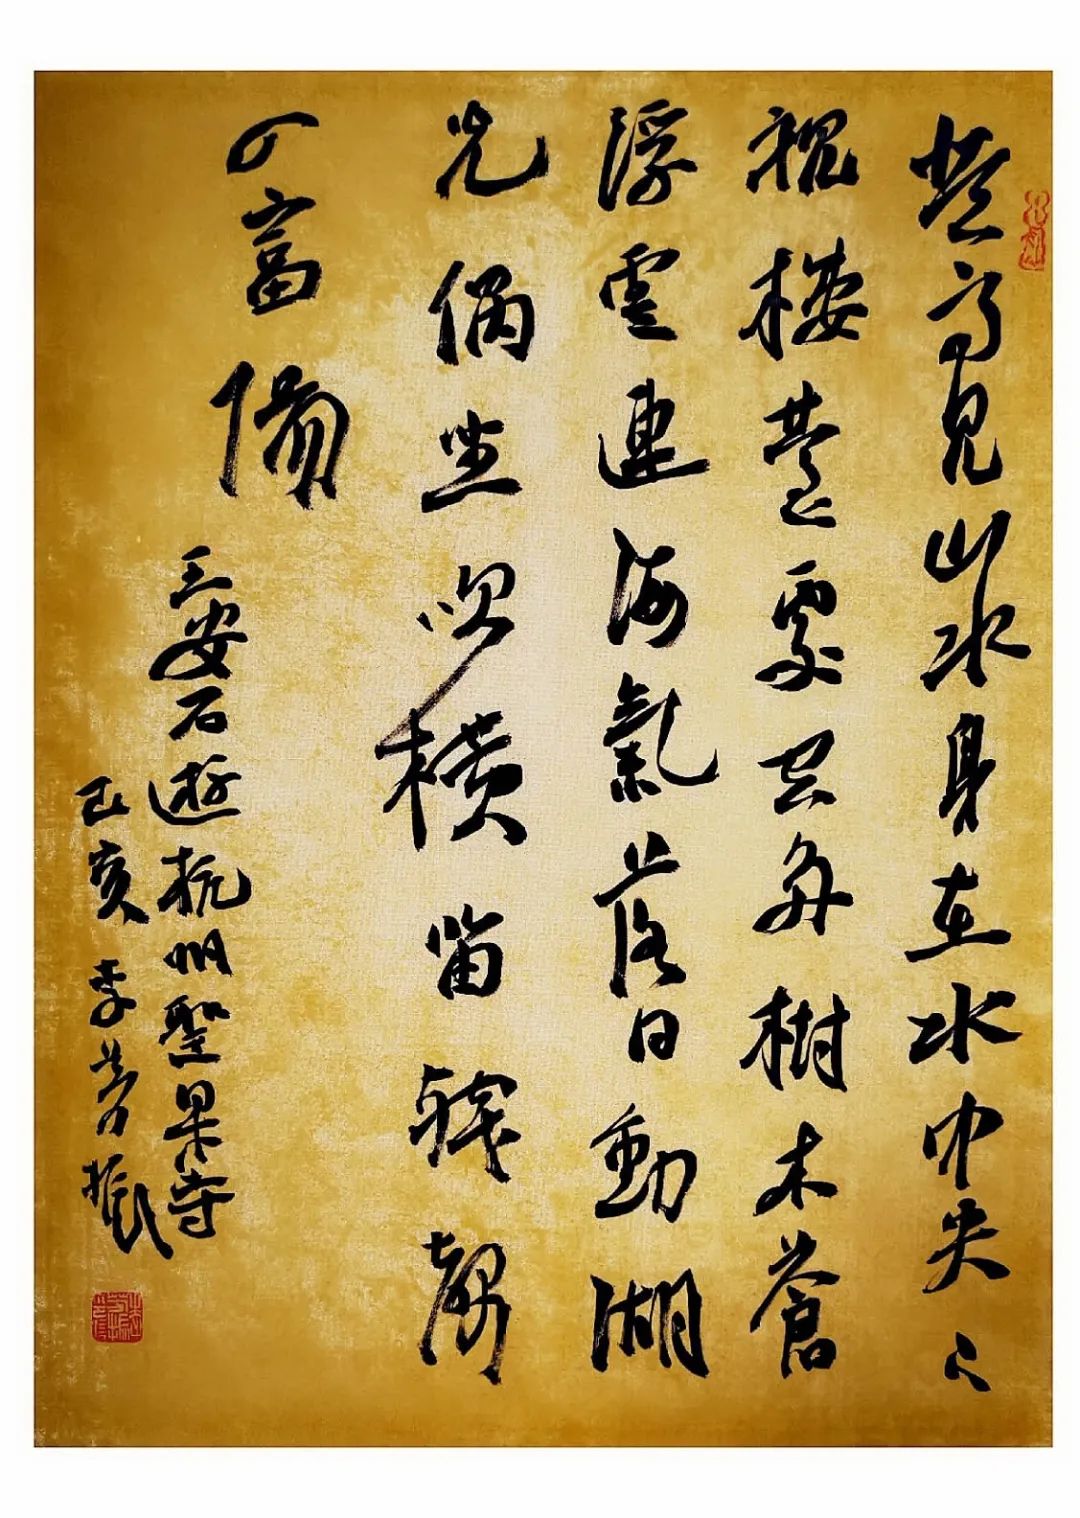 登高見山水身在水中央下
視樓臺處空多樹木蒼
浮雲連海氣落日動湖
光偶坐吹橫笛殘聲
入富陽
王安石遊杭州聖果寺
己亥李芳振